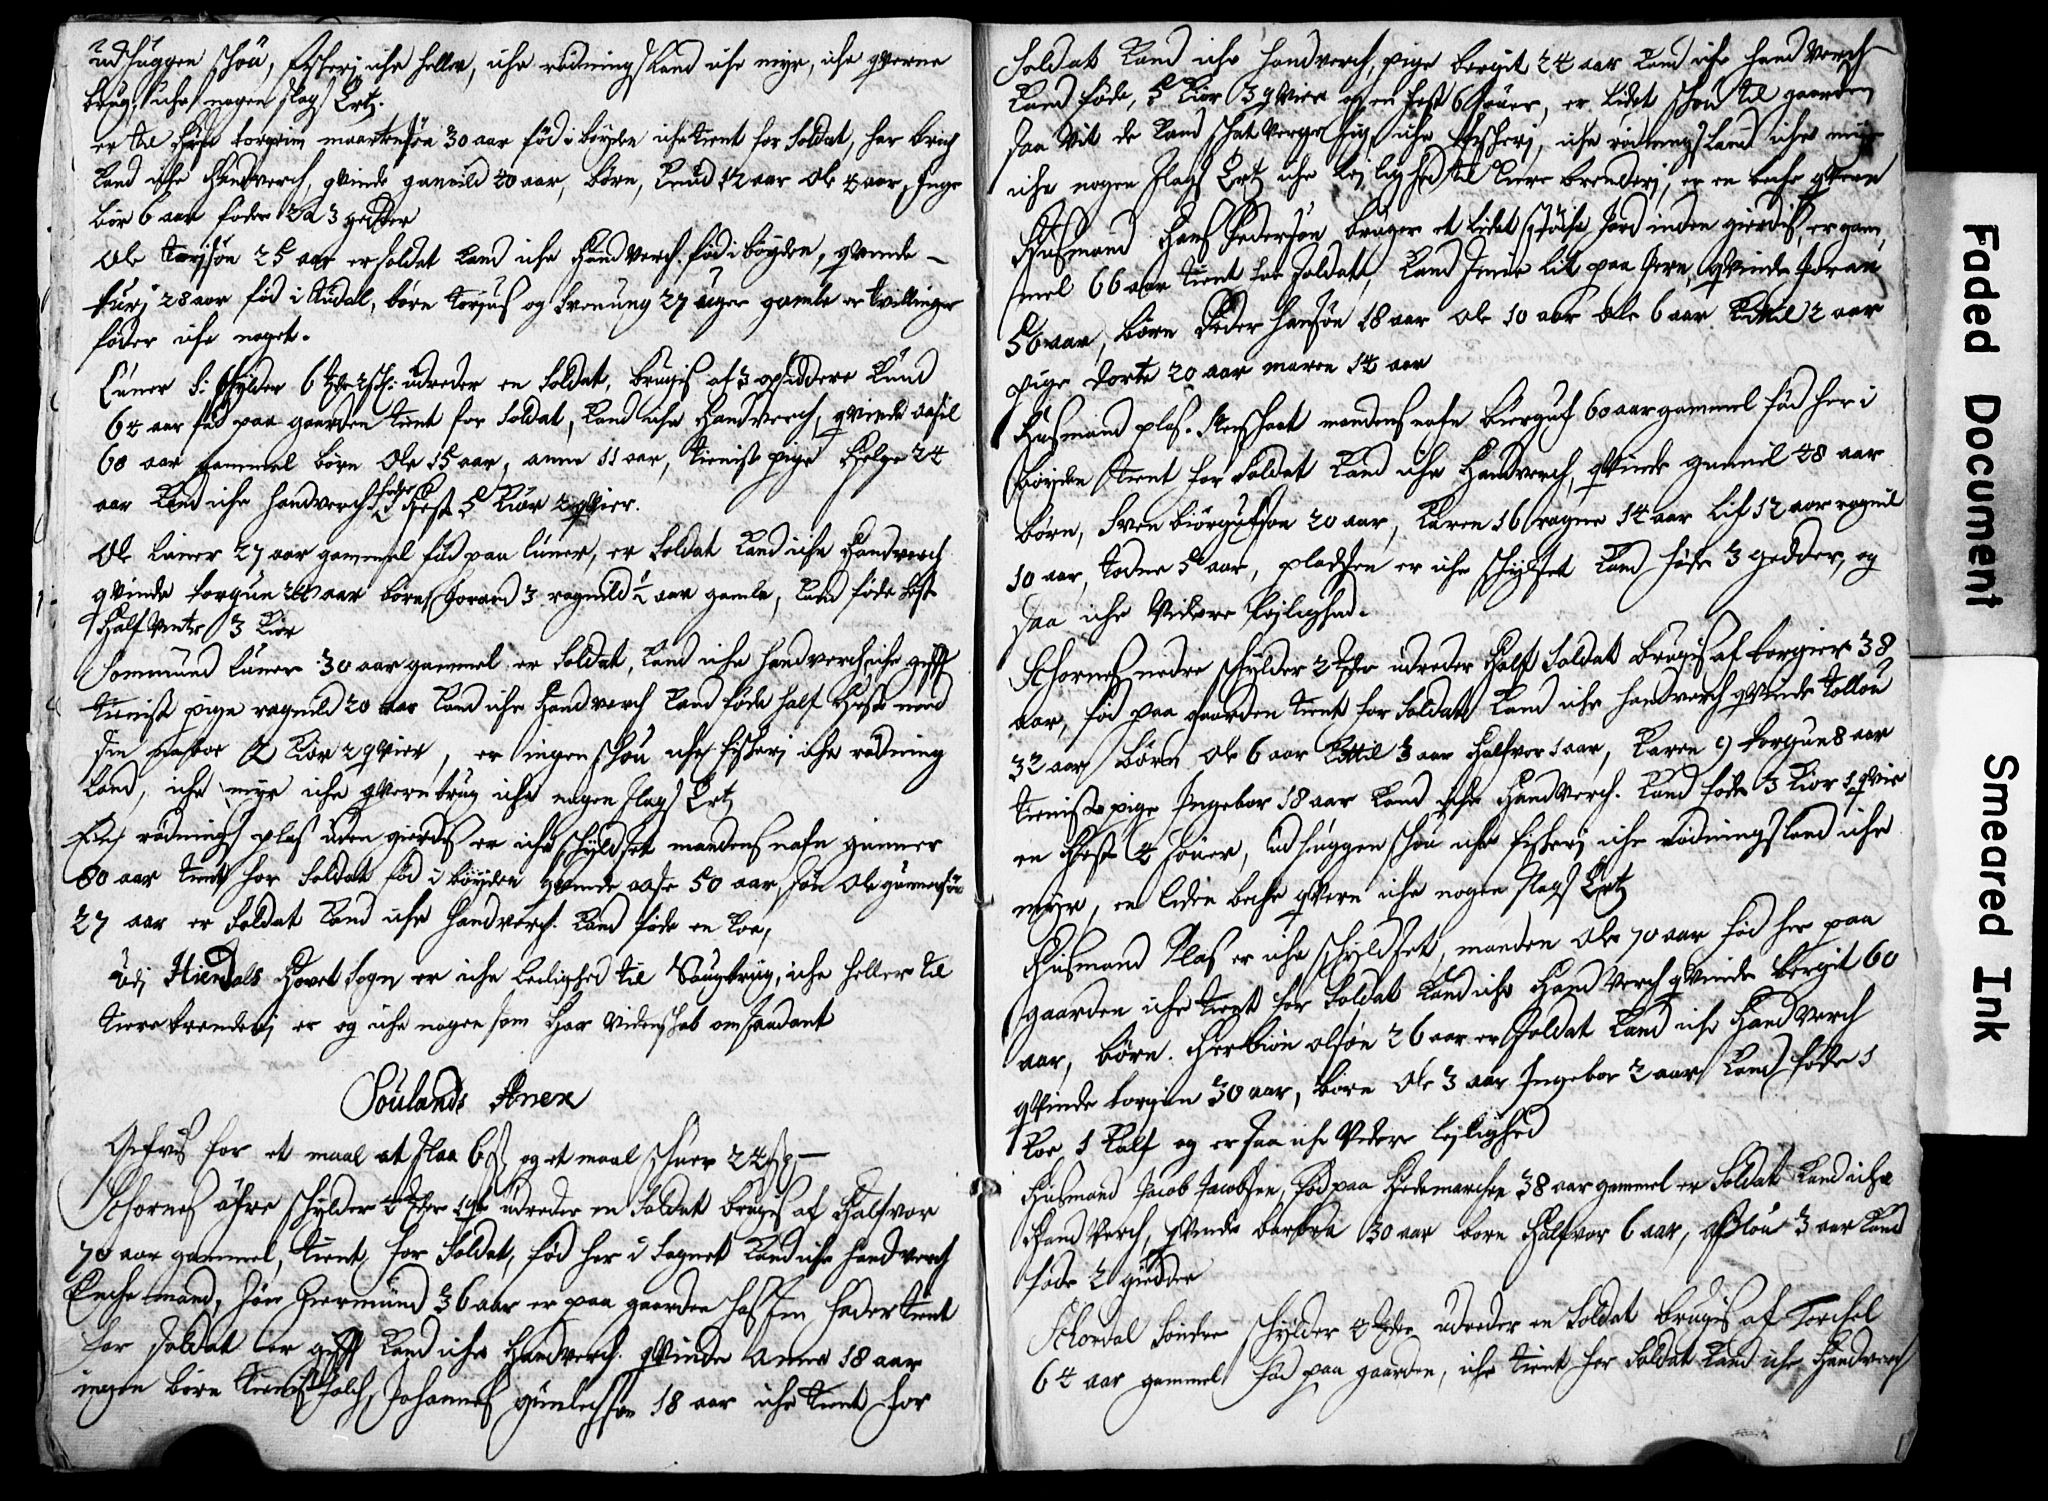 udhuggen schou, fischerj iche heller, iche rødningsland iche myr, iche qverne
brug, iche nogen slags Ertz.
er til huse torgrim maartensøn 30 aar fød i bøyden iche tient for Soldat, har brich
kand iche Handverch, qvinde gunnild 40 aar, børn, knud 12 aar ole 4 aar, Inge
bor 6 aar foder 2 a 3 gedder
Ole Tarjsøn 25 aar er soldat kand iche Handverch. fød i bøyden, qvinde
turj 28 aar fød i tudal, børn torjus og Svenung 27 uger gamle er tvillinger
føder iche noget.
Luner S: schylder 6 udreder en Soldat, brugis af 3 opsiddere knud
64 aar fød paa gaarden tient for Soldat, kand iche Handverch, qvinde
60 aar gammel børn Ole 15 aar, anne 11 aar, tieniste pige Helge 24
aar kand iche handverch føder 1 Hest 5 kiør 2 qvier.
Ole Luner 27 aar gammel fød paa luner, er Soldat kand iche Handverch
qvinde torgun 24 aar børn Joraand 3 ragnild 1/2 aar gamle, kand føde Hest
Half vinter 3 kiør
Sommund Luner 30 aar gammel er Soldat, kand iche handverch, iche gifft
tieniste pige ragnild 20 aar kand iche Handverch kand føde half Hest med
sin naboe 2 kiør 2 qvier, er ingen schou iche fischerj iche rødning
land, iche myr iche qvernbrug iche nogen slags Ertz
rødnings plas uden gierdes er iche schyldset mandens nafn gunner
80 aar tient for Soldat fød i bøyden qvinde aase 50 aar, søn Ole gunnersøn
27 aar er Soldat kand iche Handverch. kand føde en koe,
Udj Hierdals Hovet Sogn er iche Leilighed til Saugbrug, iche heller til
tiere brenderj er og iche nogen som Har videnschab om saadant
Soulands Anex
Gifvis for et maal at slaa 6 ß, og et maal schuer 24 ß
Schornes øfre schylder udreder en Soldat brugis af Halfvor
70 aar gammel, tient for Soldat, fød her i Sognet kand iche handverch
Enche mand, Søn Giermund 36 aar er paa gaarden hos sin fader tient
for Soldat er gifft kand iche Handverch. qvinde Anne 18 aar
ingen børn tieniste folch Johannes gunlechsøn 18 aar iche tient for
Soldat kand iche handverch, pige bergit 24 aar kand iche hand verch
kand føde, 5 kiør 3 qvier og en Hest 6 souer, er Lidet schou til gaarden
saa vit de kand schat verge sig iche fischerj, iche rødningsland iche myr
iche nogen slags Ertz iche lejlighed til tiere brenderj, er en beche qvern
Husmand Hans Pedersøn bruger et lidet støche Jord inden gierdis, er gam,
mel 66 aar tient for Soldat, kand smie lit paa Jern, qvinde Joran
56 aar, børn Peder Hansøn 18 aar ole 10 aar Ole 6 aar kittil 2 aar
pige dorte 20 aar maren 14 aar
Husmand plas. mandens nafn biørguf 60 aar gammel fød her i
bøyden tient for Soldat kand iche Handverch, qvinde gunnil 48 aar
børn, Sven biørgufsøn 20 aar, karen 16 ragne 14 aar Lif 12 aar ragnil
10 aar, Todne 5 aar, pladsen er iche schyldset kand føde 3 gedder, og
saa iche videre Lejlighed.
Schornes nedre schylder udreder Halft Soldat brugis af torgier 38
aar, fød paa gaarden tient for Soldat kand iche handverch qvinde tollou
32 aar børn Ole 6 aar kittil 3 aar Halfvor 1 aar, karen 9 torgun 8 aar
tieniste pige Ingebor 18 aar kand iche Handverch. kand føde 3 kiør 1 qvie
en Hest 4 souer, udhuggen schou iche fischerj iche rødningsland iche
myr, en liden beche qvern iche nogen slags Ertz
Husmand Plas er iche schyldset, manden Ole 70 aar fød her paa
gaarden iche tient for Soldat kand iche Handverch qvinde bergit 60
aar, børn. Herbiøn olsøn 26 aar er Soldat kand iche Handverch
qvinde torgun 30 aar, børn Ole 3 aar Ingebor 2 aar kand føde 1
koe, 1 kalf og er saa iche videre lejlighed
Husmand Jacob Jacobsen, fød paa Hedemarchen 38 aar gammel er Soldat kand iche
Handverch, qvinde barbra 30 aar børn Halfvor 6 aar, aslou 3 aar kand
føde 2 giedder
Schordal Søndre schylder udreder en Soldat brugis af Torchel
64 aar gammel fød paa gaarden, iche tient for Soldat kand iche Handverch
Faded Document
Smeared Ink